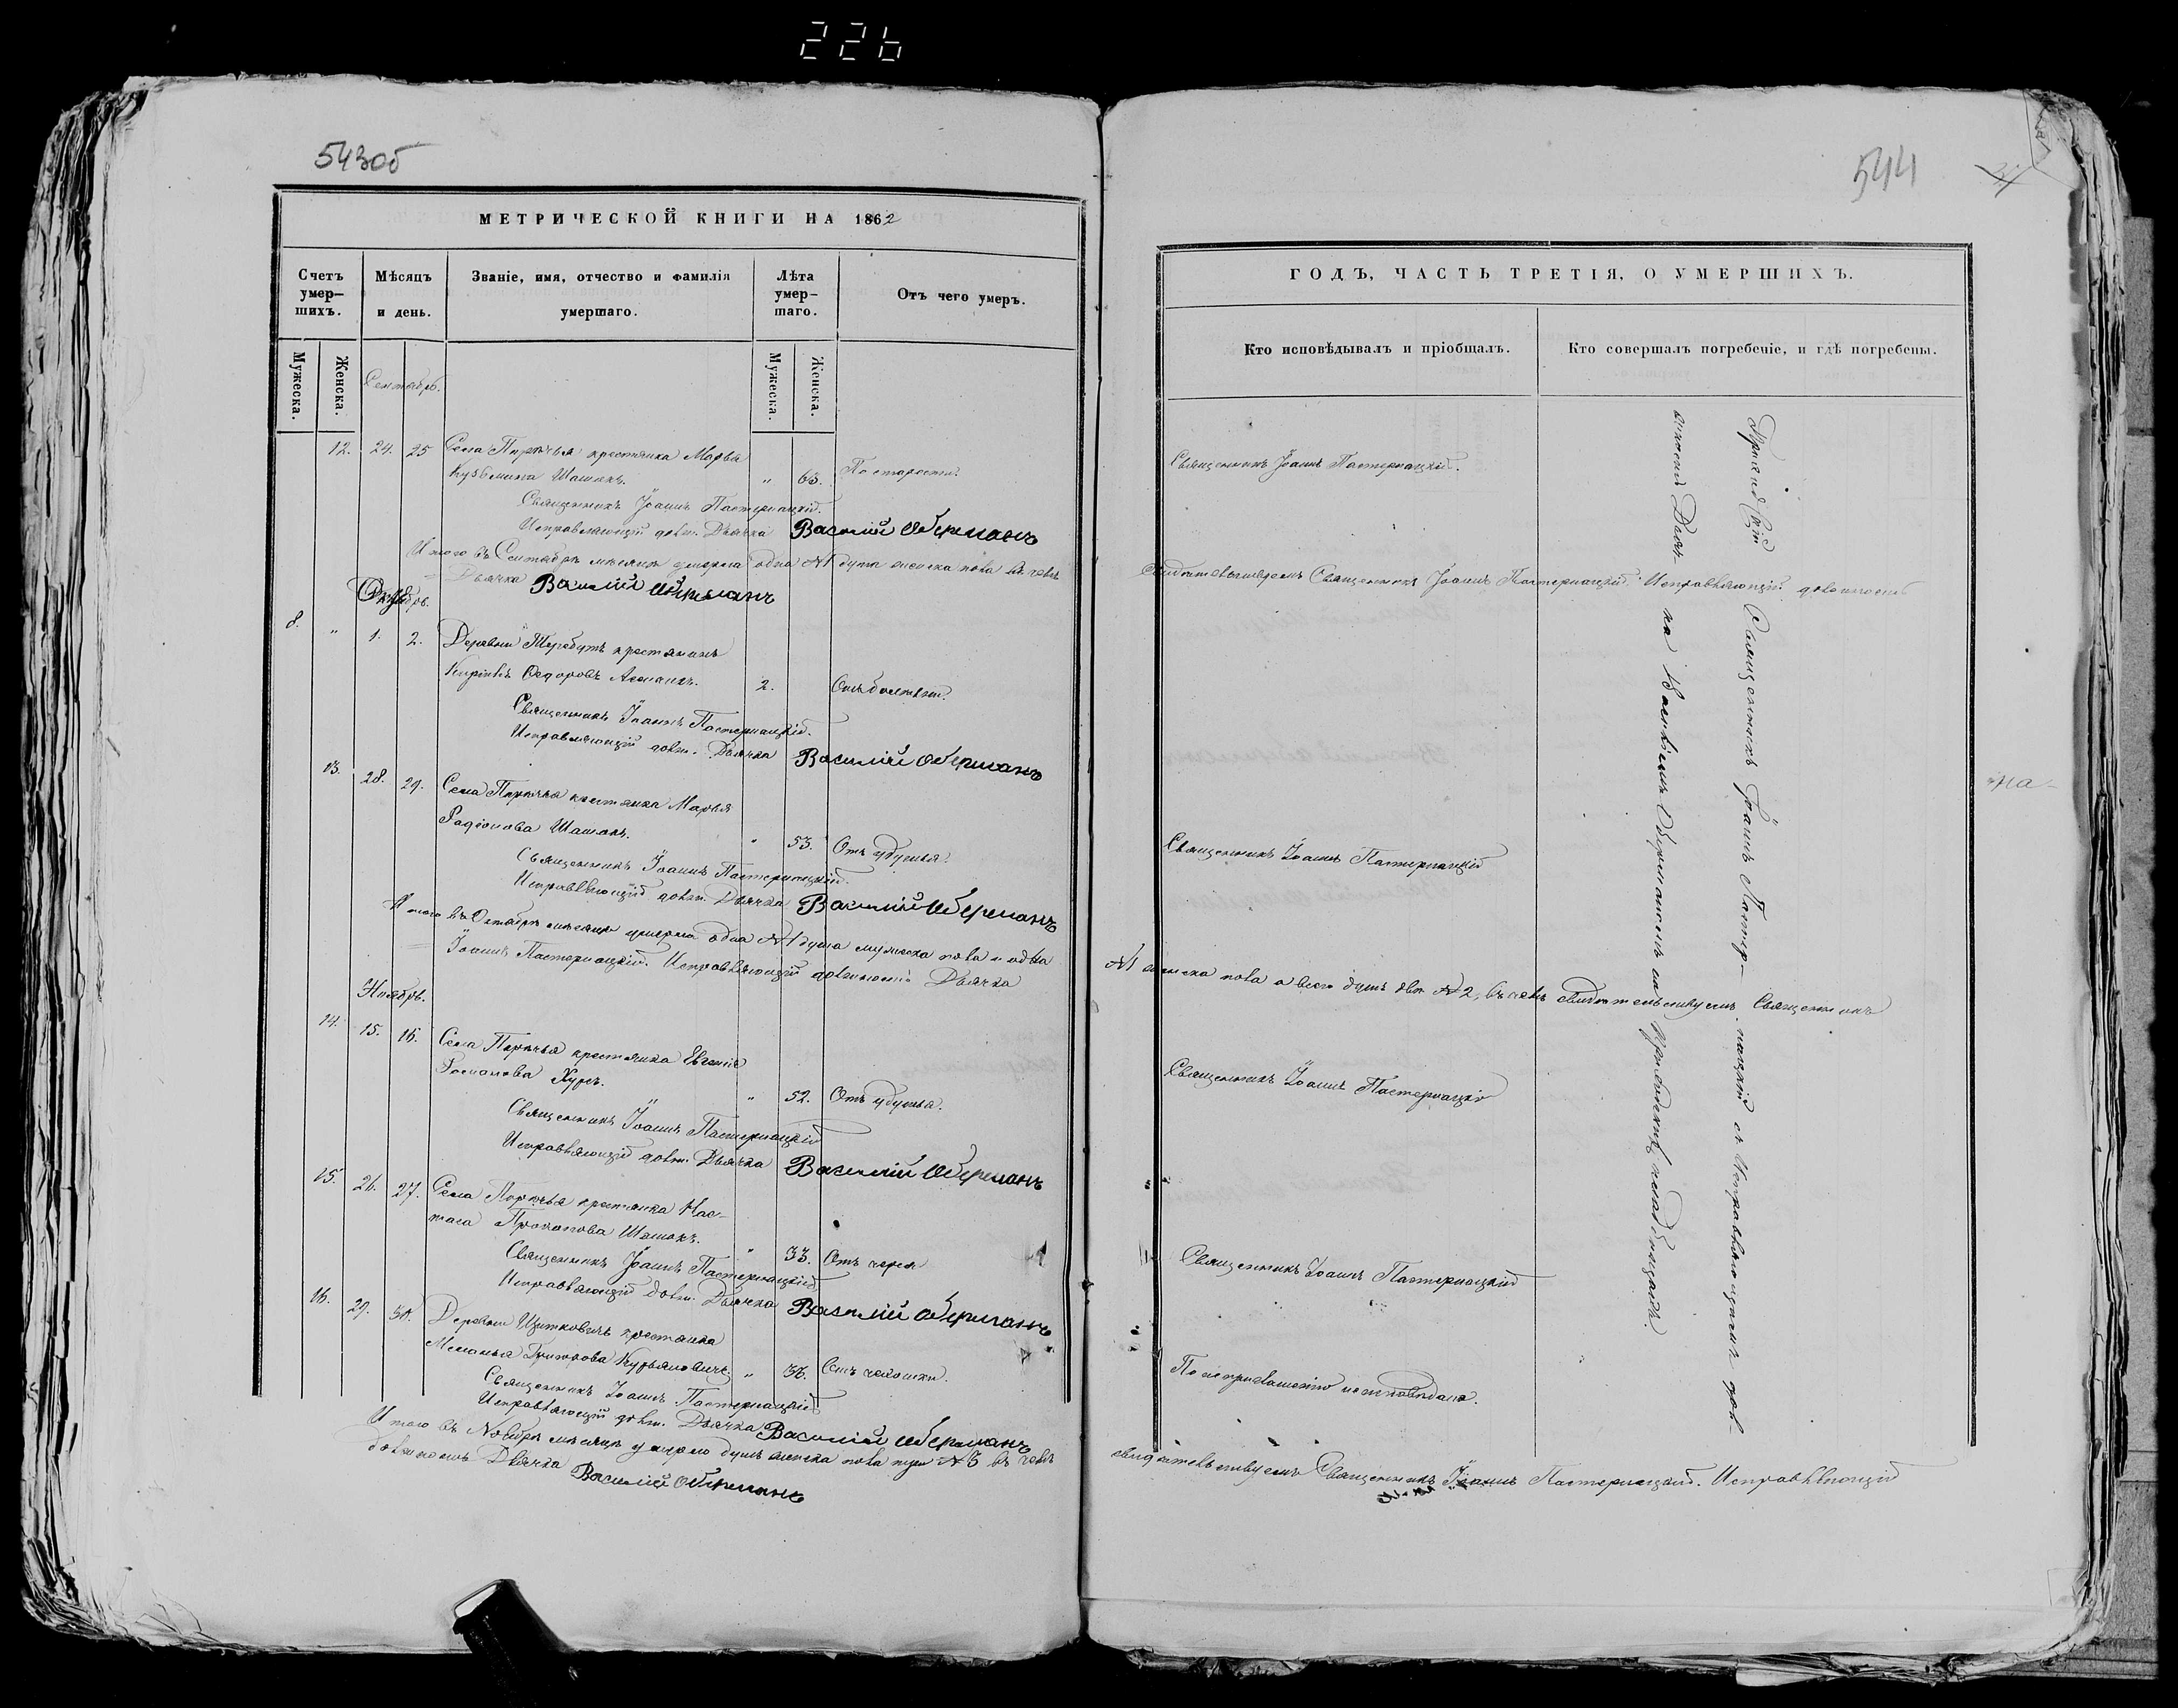 226
543об
МЕТРИЧЕСКОЙ КНИГИ НА 1862
Счетъ умер-шихъ.
Мѣсяцъ и день.
Званіе, имя, отчество и фамилія умершаго.
Лѣта умер-шаго.
Отъ чего умеръ.
Мужеска.
Женска.
Мужеска.
Женска.
Сентябрь.
12. 24. 25 Села Порѣчья крестянка Марья
Кузьмина Шашокъ. " 63. По старости.
Священникъ Іоаннъ Пастернацкій.
Исправляющій долж. Дьячка Василій Оберманъ
Итого въ Сентябрѣ мѣсяцѣ умерла одна №1 душа женска пола въ чемъ
Дьячка Василій Оберманъ
Октябрь.
8. " 1. 2. Деревни Теребутъ крестянинъ
Ѳедоровъ 2. Отъ болѣзни.
Священникъ Іоаннъ Пастернацкій.
Исправляющій долж. Дьячка Василій Оберманъ
13. 28. 29. Села Порѣчья крестянка Марья
Радіонова Шашокъ. " 53. Отъ удушья.
Священникъ Іоаннъ Пастернацкій.
Исправляющій долж. Дьячка Василій Оберманъ
Итого въ Октябрѣ мѣсяцѣ умерла одна №1 душа мужеска пола и одна
Іоаннъ Пастернацкій. Исправляющій должность Дьячка
Ноябрь.
14. 15. 16. Села Порѣчья крестянка Евгенія
Романова Куръ. " 52. Отъ удушья.
Священникъ Іоаннъ Пастернацкій
Исправляющій долж. Дьячка Василій Оберманъ
15. 26. 27. Села Порѣчья крестянка Нас-
тася Прокопова Шашокъ. " 33. Отъ
Священникъ Іоаннъ Пастернацкій
Исправляющій долж. Дьячка Василій Оберманъ
16. 29. 30. Деревни Щитковичъ крестянка
Меланья Курьяновичъ " 36. Отъ чахотки.
Священникъ Іоаннъ Пастернацкій
Исправляющій долж. Дьячка Василій Оберманъ
Итого въ Ноябрѣ мѣсяцѣ умерло душъ женска пола три №3 въ чемъ
должность Дьячка Василій Оберманъ
544
ГОДЪ, ЧАСТЬ ТРЕТІЯ, О УМЕРШИХЪ.
Кто исповѣдывалъ и пріобщалъ.
Кто совершалъ погребеніе, и гдѣ погребены.
Священникъ Іоаннъ Пастернацкій.
свидѣтельствуемъ Священникъ Іоаннъ Пастернацкій. Исправляющій должность
Священникъ Іоаннъ Пастернацкій
№1 женска пола а всего душъ двѣ №2, въ чемъ свидѣтельствуемъ Священникъ
Священникъ Іоаннъ Пастернацкій
Священникъ Іоаннъ Пастернацкій
По неприглашенію неисповѣдана.
свидѣтельствуемъ Священникъ Іоаннъ Пастернацкій. Исправляющій
Священникъ Іоаннъ Пастер-нацкій съ Исправляющимъ дол-
жность Дьяч-ка Василіемъ Оберманомъ на Приходскихъ кладбищахъ.